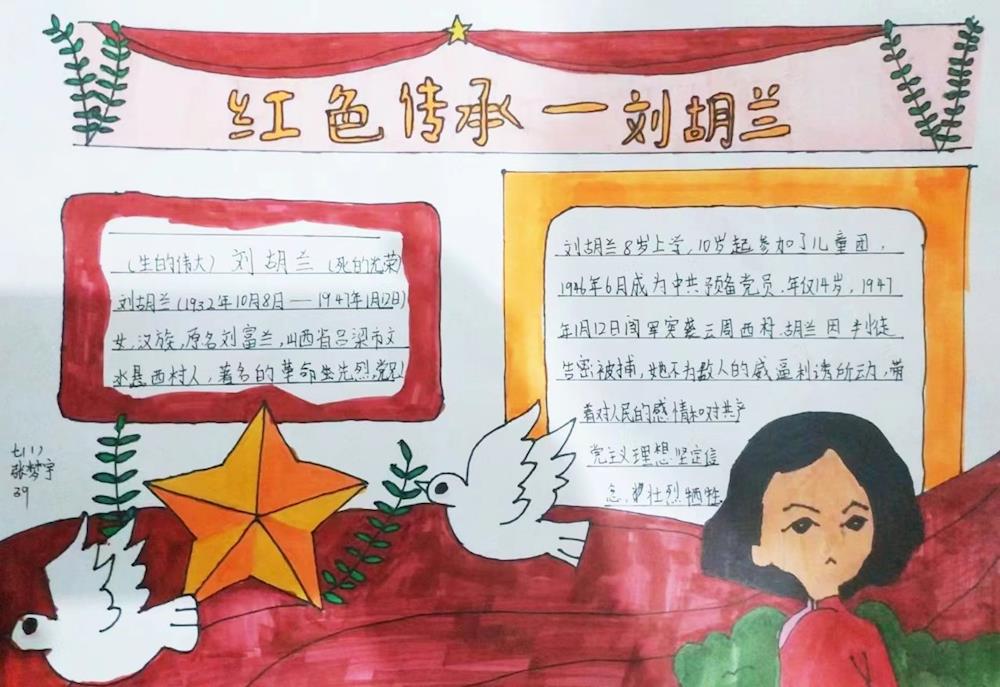 红色传承一刘胡兰
(生的伟大) 刘胡兰 (死的光荣)
刘胡兰(1932年10月8日——1947年1月12日)
女,汉族,原名刘富兰,山西省吕梁市文
水县西村人,著名的革命先烈,党员
刘胡兰8岁上学,10岁起参加了儿童团,
1946年6月成为中共预备党员.年仅14岁,1947
年1月12日阎军突袭云周西村.胡兰因判徒
告密被捕,她不为敌人的威逼利诱所动,带
着对人民的感情和对共产
党主义理想坚定信
念,壮烈牺牲
七(1)
张梦宇
39